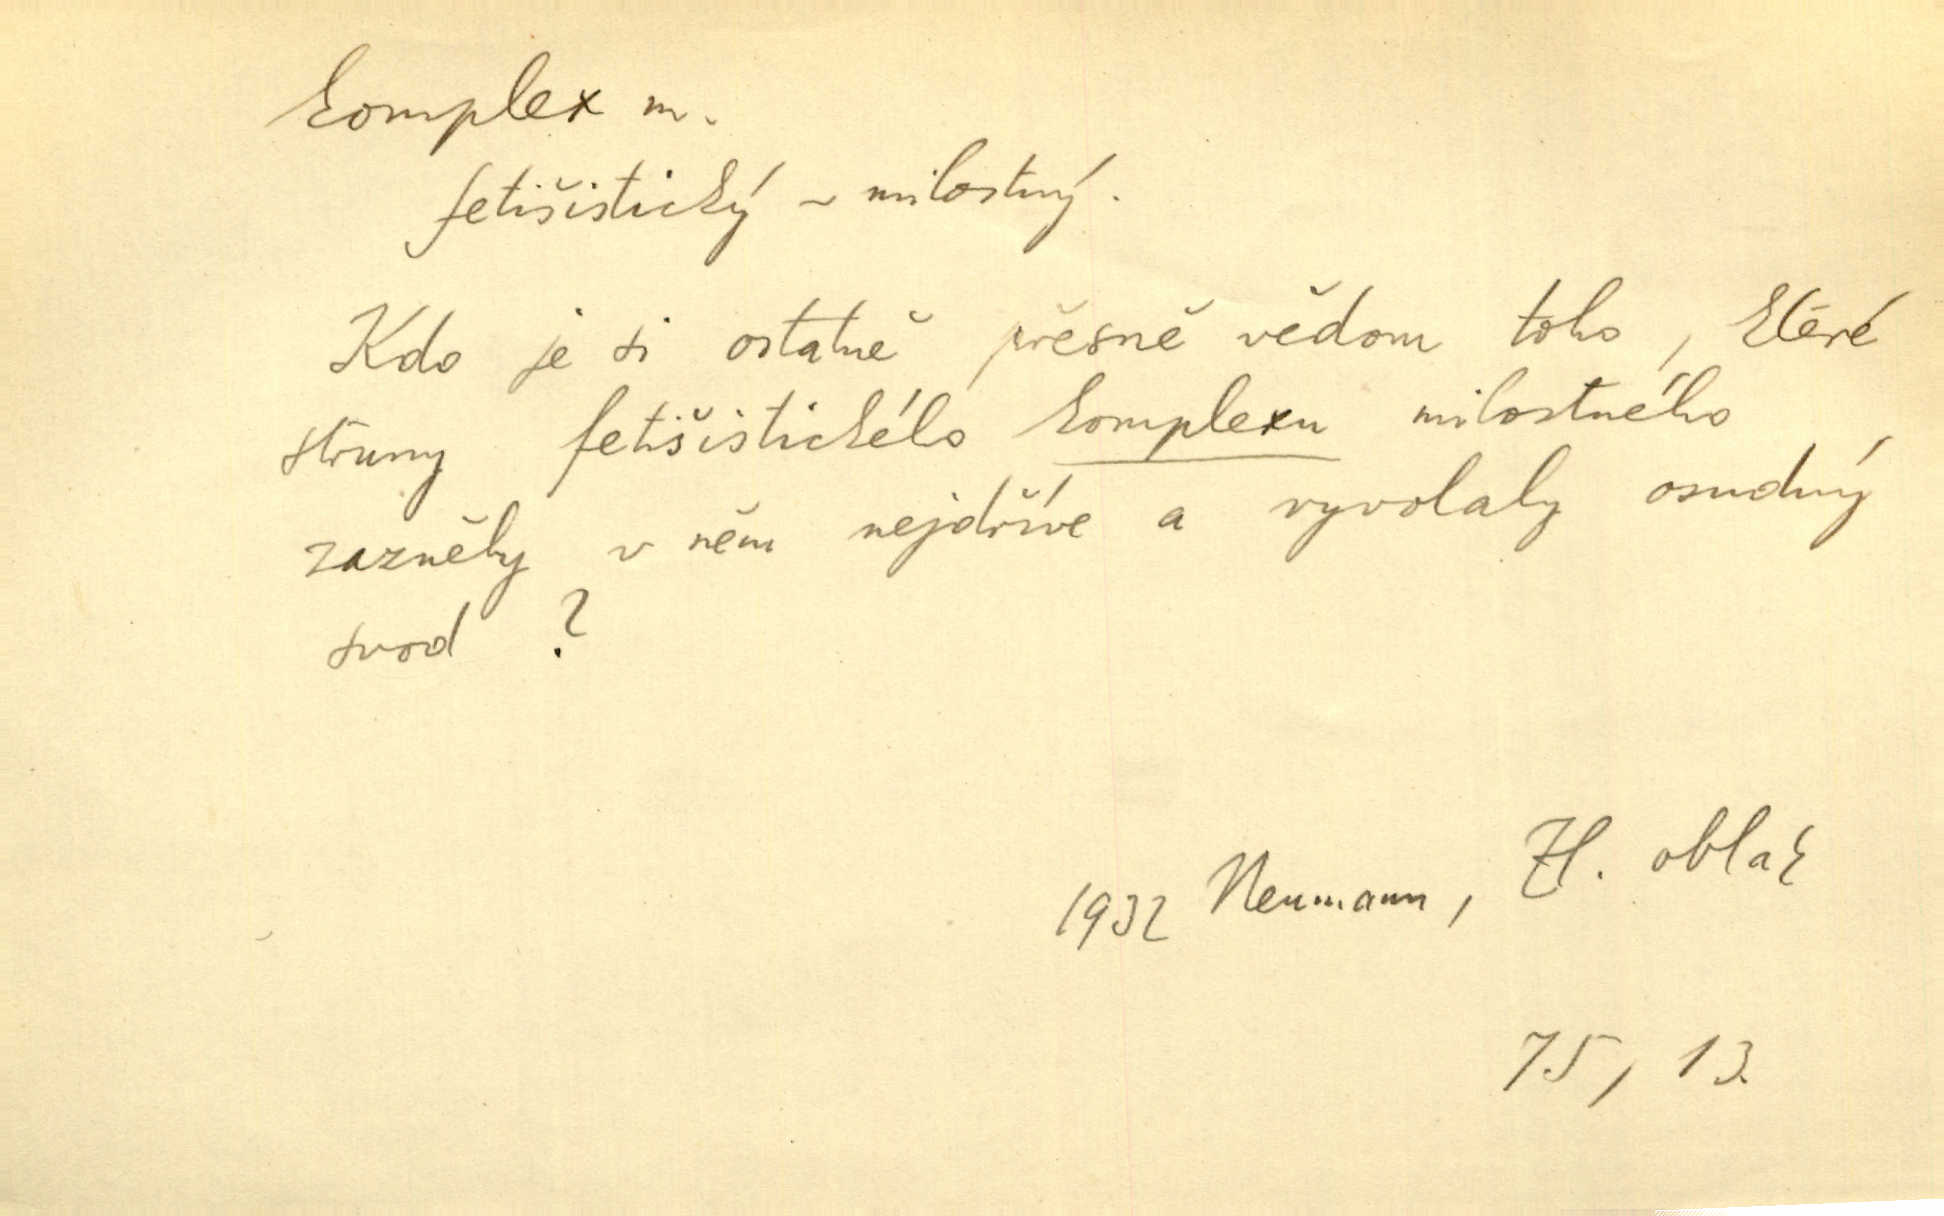 komplex m.
fetišistický ~ milostný.
Kdo je si ostatně přesně vědom toho, které
struny fetišistického komplexu milostného
zazněly v něm nejdříve a vyvolaly osudný
svod ?
1932 Neumann, Zl. oblak
75, 13.